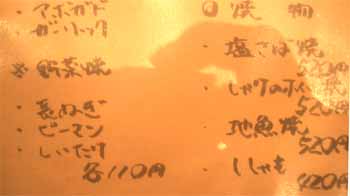 ・アボガド
・ガーリック
※野菜焼
・長ねぎ
・ピーマン
・しいたけ
各110円
◎焼物
・塩さば焼
・しゃけのホイル焼
520円
・地魚焼
520円
・ししゃも
420円